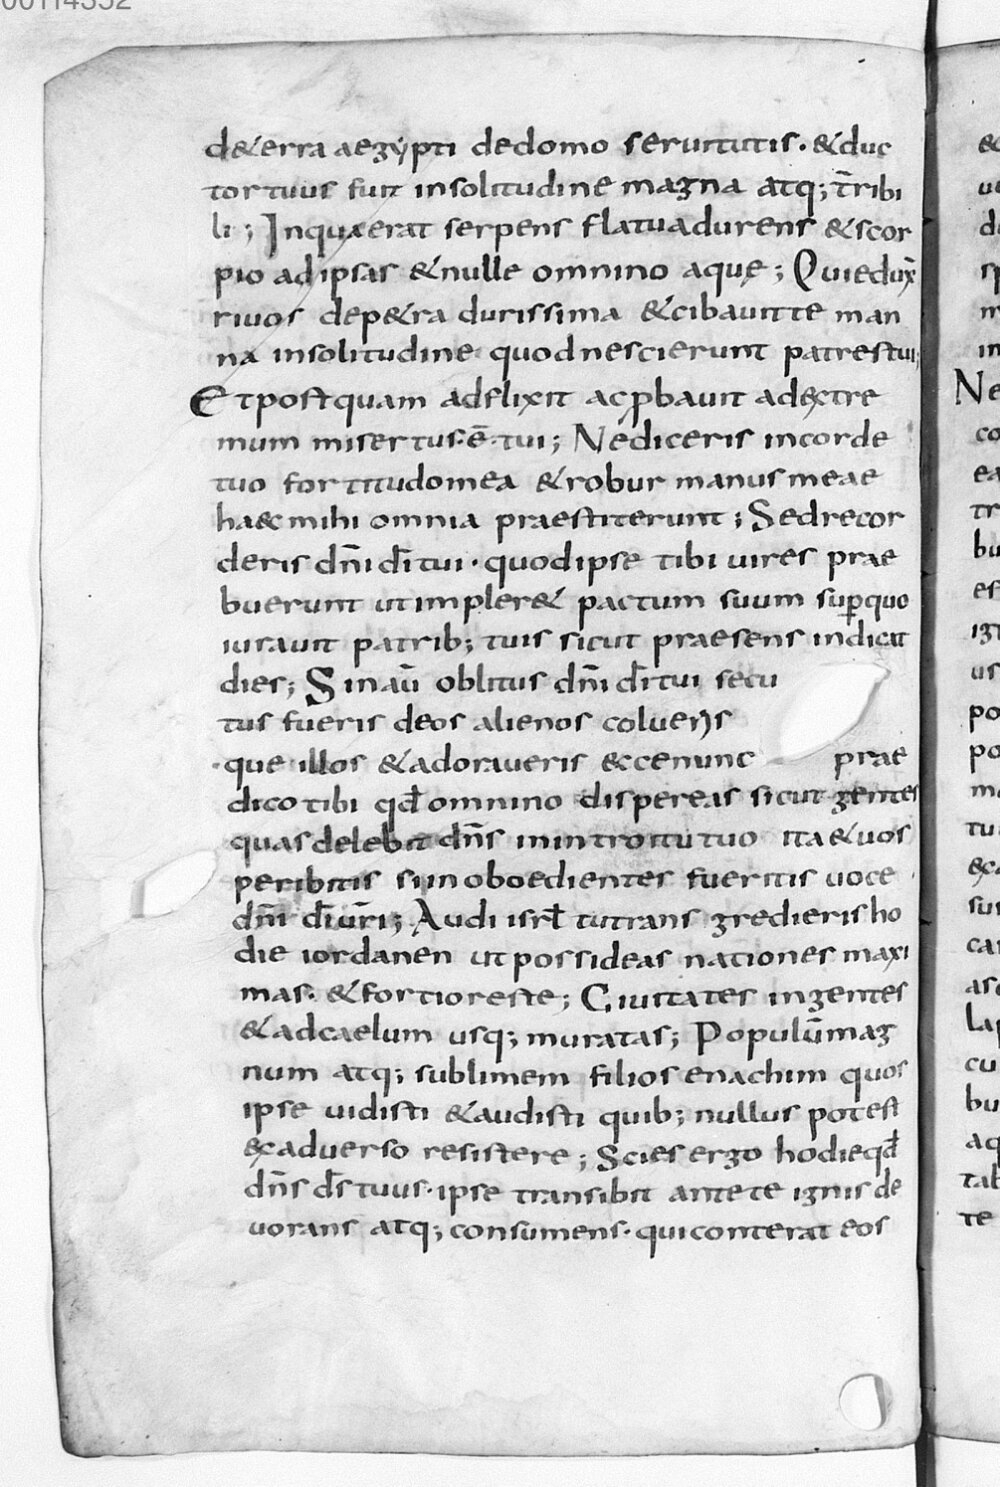 00114352
d&erra aegypti dedomo seruitutis. &duc
tor tuus fuit insolitudine magna atq; t̄ribi
li; Inqua erat serpens flatuadurens &scor
pio ad ipsas &nulle omnino aquę; Quiedux̄
riuos dep&ra durissima &cibauitte man
na insolitudine quodnescierunt patrestui;
Etpostquam adflixit acꝓbauit adextre
mum misertus·ē·tui; Nediceris incorde
tuo fortitudomea &robur manusmeae
haecmihi omnia praestiterunt; Sedrecor
deris dn̄i dī tui· quodipse tibi uires prae
buerunt utimpler& pactum suum suꝑquo
iurauit patrib; tuis sicut praesens indicat
dies; Sinaū oblitus dn̄i dī tui secu
tus fueris deos alienos colueris
que illos &adoraueris eccenunc prae
dico tibi qđ omnino dispereas sicut gentes
quas delebit dn̄s inintroitu tuo ita &uos
peribitis siinoboedientes fueritis uoce
dn̄i dī ur̄i; Audi isrł tutrans gredieris ho
die iordanen ut possideas nationes maxi
mas. &fortioreste; Ciuitates ingentes
&adcaelum usq; muratas; Populūmag
num atq; sublimem filios enachim quos
ipse uidisti &audisti quib; nullus potest
exaduerso resistere; Scies ergo hodieqđ
dn̄s d̄s tuus· ipse transibit antete ignis de
uorans atq; consumens· quiconterat eos